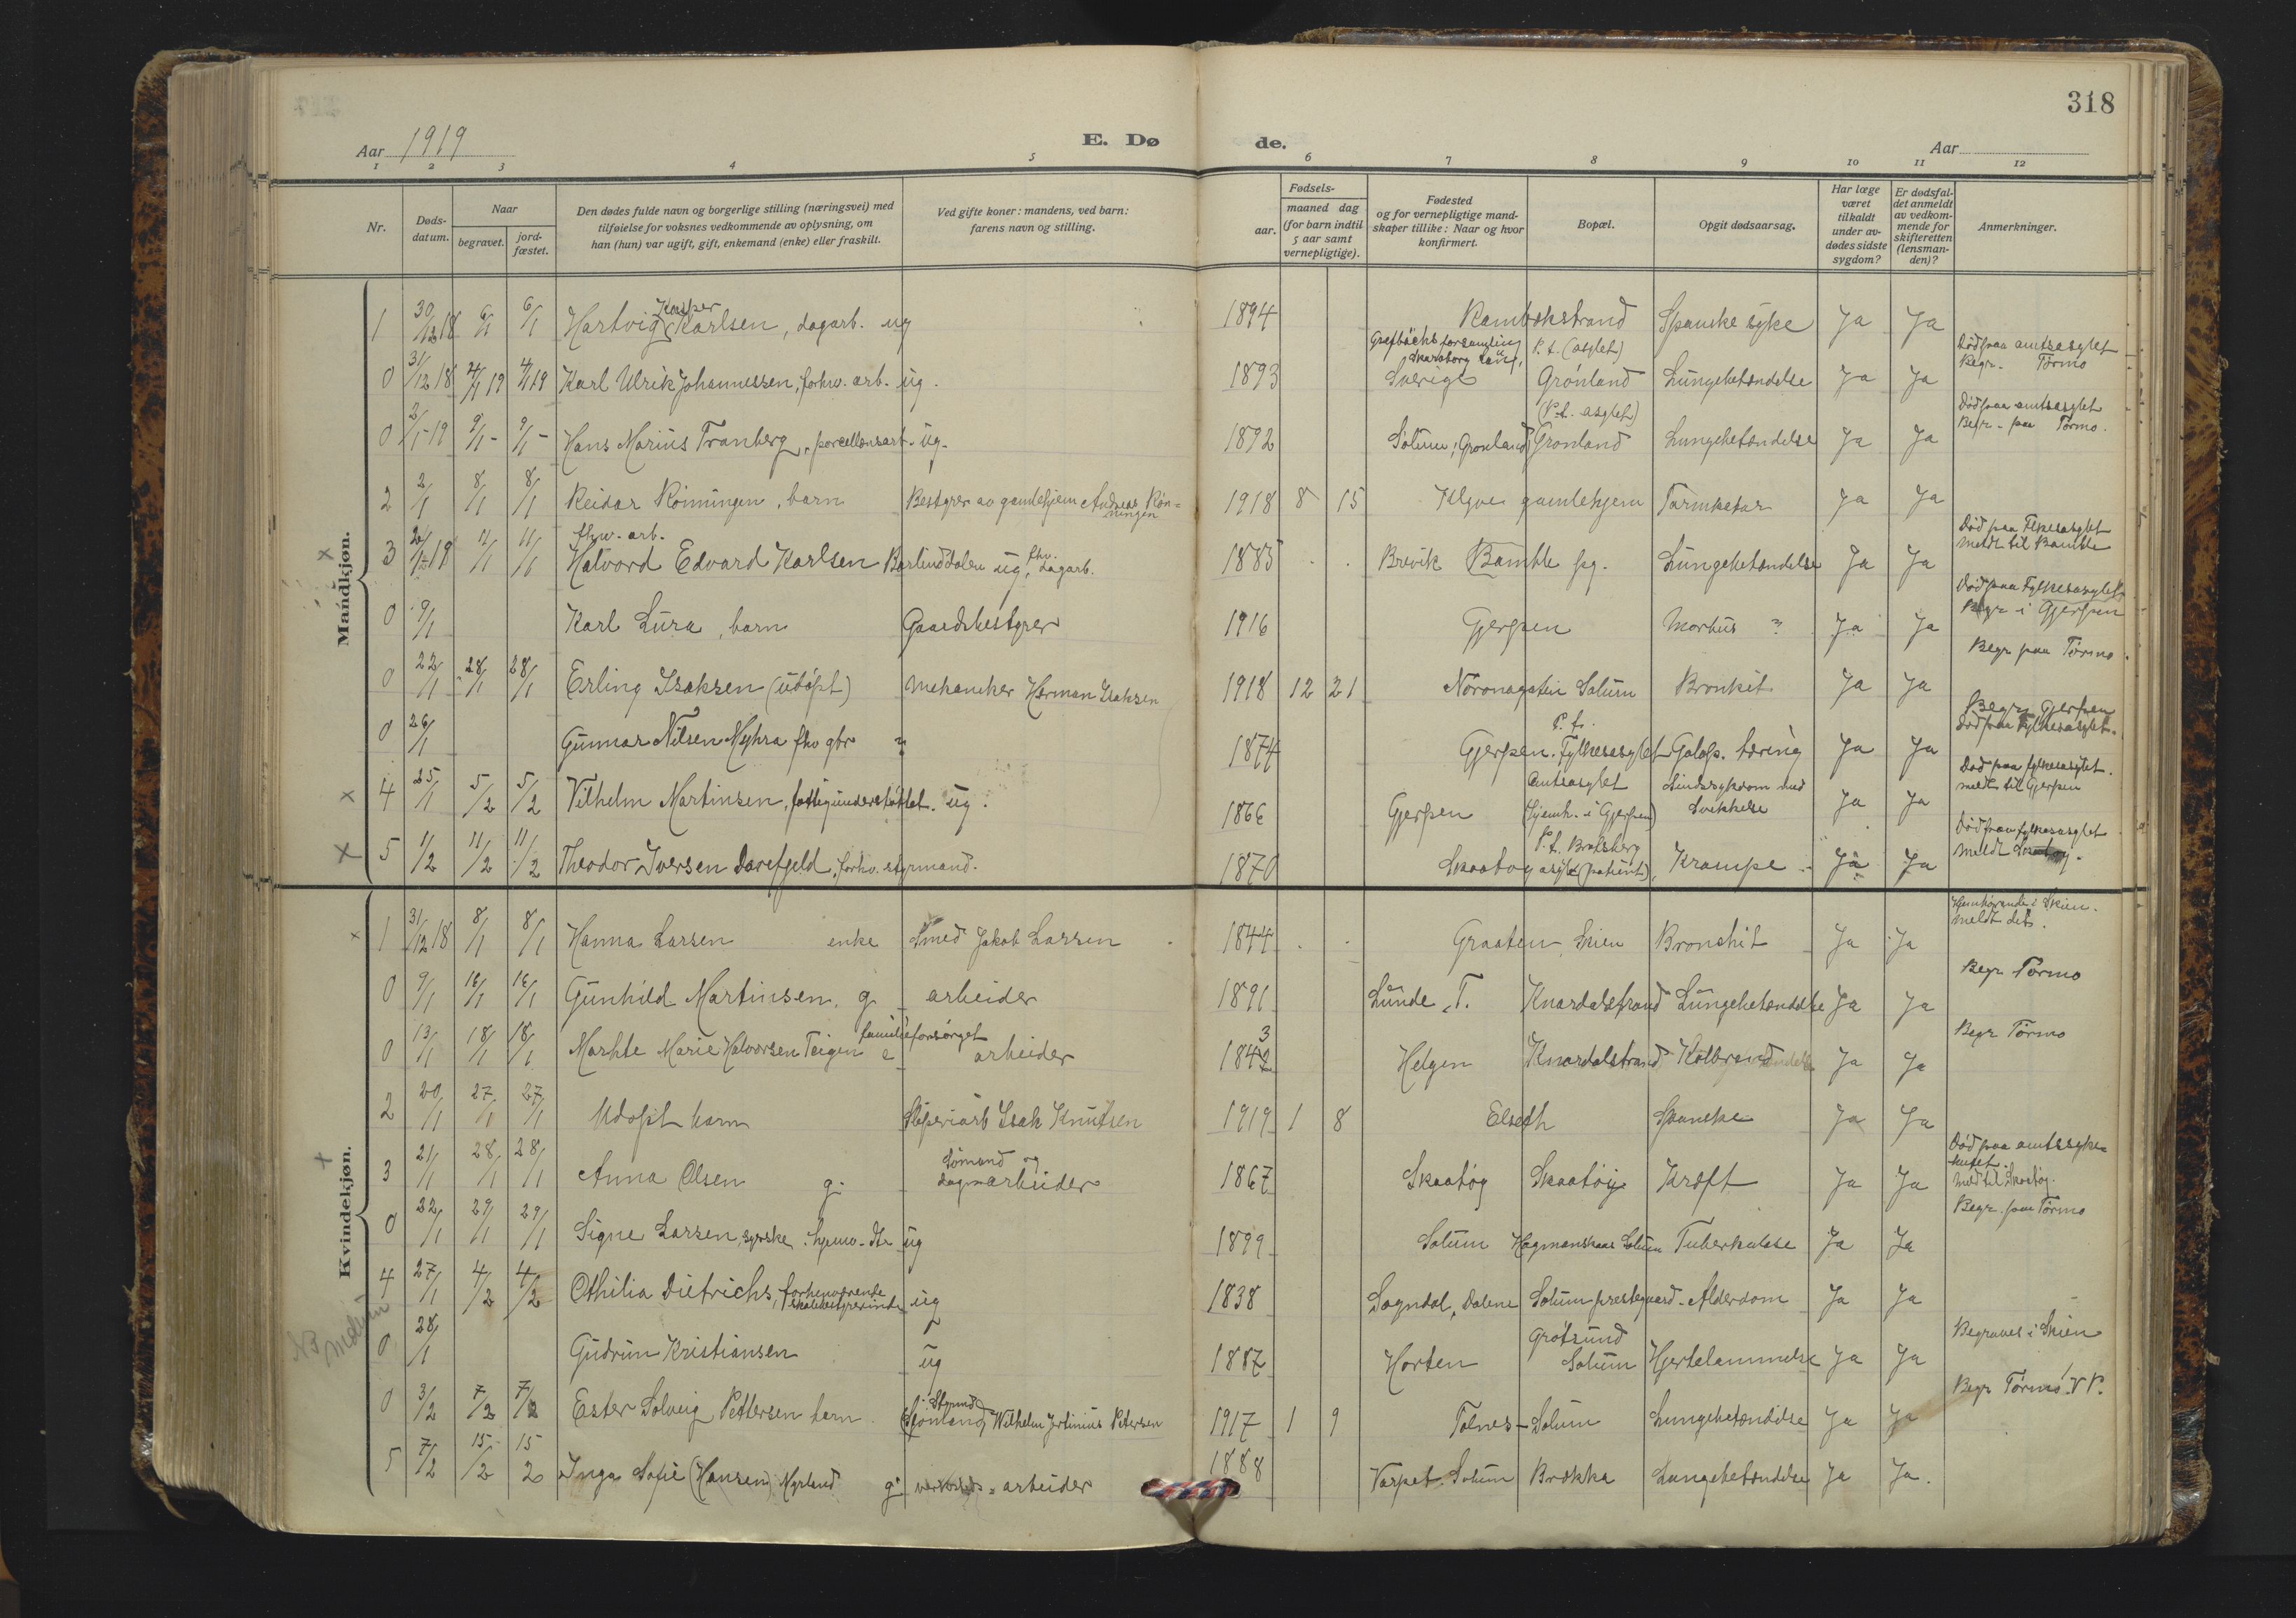 318
Aar 1919
E. Dø de.
Aar
1 2 3 4 5 6 7 8 9 10 11 12
Nr.
Døds-
datum.
Naar
begravet.
jord-
fæstet.
Den dødes fulde navn og borgerlige stilling (næringsvei) med
tilføielse for voksnes vedkommende av oplysning, om
han (hun) var ugift, gift, enkemand (enke) eller fraskilt.
Ved gifte koner: mandens, ved barn:
farens navn og stilling.
Fødsels-
aar.
maaned dag
(for barn indtil
5 aar samt
vernepligtige).
Fødested
og for vernepligtige mand-
skaper tillike: Naar og hvor
konfirmert.
Bopæl.
Opgit dødsaarsag.
Har læge
været
tilkaldt
under av-
dødes sidste
sygdom?
Er dødsfal-
det anmeldt
av vedkom-
mende for
skifteretten
(lensman-
den)?
Anmerkninger.
Mandkjøn.
1 30/12 18 6/1 6/1 Hartvig Kasper Karlsen, dagarb. ug 1894 Rambekstrand Spanske syke Ja Ja
0 31/12 18 4/1 19 4/1 19 Karl Ulrik Johannessen, forhv. arb. ug. 1893 Skaraborg Län, Sverige P.t. (asylet) Grönland Lungebetændelse Ja Ja Död paa amtsasylet Begr. Törmo
0 2/1 19 9/1 - 9/1 - Hans Marius Tranberg, porcellænsarb. ug. 1892 Solum, Grønland (P.t. asylet) Grønland Lungebetændelse Ja Ja Död paa amtsasylet Begr. paa Tormo.
2 2/1 8/1 8/1 Reidar Rönningen, barn Bestyrer av gamlehjem Andreas Rön-
ningen 1918 8 15 Klyve gamlehjem Tarmkatar Ja Ja
3 11/1 11/1 fhv. arb. Halvord Edvard Karlsen Barlinddalen ug, fhv. dagarb. 1885 Brevik Bamble pg. Lungebetændelse Ja Ja Död paa Fylkesasylet meldt til Bamble
0 9/1 Karl Lura, barn Gaardsbestyrer 1916 Gjerpen Morbus Ja Ja Död paa Fylkesasylet Begr i Gjerpen
0 22/1 28/1 28/1 Erling Isaksen (udöpt) Mekaniker Herman Isaksen 1918 12 21 Solum Bronkit Ja Ja Begr paa Törmo.
0 26/1 Gunnar Nilsen Myhra fhv gbr " 1874 Gjerpen P.t. Fylkesasylet Galop. tæring Ja Ja Begr. Gjerpen Död paa Fylkesasylet.
4 25/1 5/2 5/2 Vilhelm Martinsen, fattigunderstöttet. ug. 1866 Gjerpen Amtsasylet (Hjemh. i Gjerpen) Sindssykdom med Svækkelse Ja Ja Död paa fylkesasylet. meldt til Gjerpen
5 1/2 11/2 11/2 Theodor Iversen Darefjeld, forhv. styrmand. 1870 Skaatoy P.t. Bratsberg asyl (patient), Krampe Ja Ja Död paa fylkesasylet meldt Skaatøy.
Kvindekjøn.
1 31/12 18 8/1 8/1 Hanna Larsen enke Smed Jakob Larsen 1844 Graaten, Skien Bronchit Ja Ja Hjemhörende i Skien. Meldt dit.
0 9/1 16/1 16/1 Gunhild Martinsen, g. arbeider 1891 Lunde, T. Knardalstrand Lungebetændelse Ja Ja Begr Törmo
0 13/1 18/1 18/1 Marthe Marie Halvorsen Teigen familieforsörget e arbeider 3 1842 Helgen Knardalstrand Koldbrand Ja Ja Begr Törmo
2 20/1 27/1 27/1 Udöpt barn Sliperiarb Isak Knutsen 1919 1 8 Elseth Spanske Ja Ja
3 21/1 28/1 28/1 Anna Olsen g. Sömand og dagarbeider 1867 Skaatöy Skaatöy Kræft Ja Ja Död paa amtssyke-
huset. Meld til Skaatöy.
0 22/1 29/1 29/1 Signe Larsen, syerske, hjemv. dtr ug 1899 Solum Hagmanskaas Solum Tuberkulose Ja Ja Begr. paa Törmo
4 27/1 4/2 4/2 Othilia Dietrichs, forhenværende skolebestyrerinde ug 1838 Sogndal, Dalene Solum prestegaard Alderdom Ja Ja
NB
0 28/1 Gudrun Kristiansen ug 1887 Horten Grötsund Solum Hjertelammelse Ja Ja Begraves i Skien
0 3/2 7/2 7/2 Ester Solveig Pettersen barn Wilhelm Petersen 1917 1 9 Tolnes - Solum Lungebetændelse Ja Ja Begr Törmo
5 7/2 15/2 15/2 Inga Sofie (Hansen) Myrland g. arbeider 1888 Varpet. Solum Brækka Lungebetændelse Ja Ja.